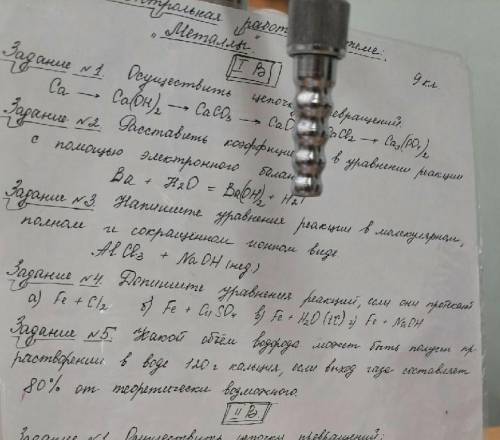 Контрольная работа теме:
"Металлы."
I В.
9 кл
Задание №1. Осуществить цепочку превращений.
Ca → Ca(OH)2 → CaCO3 → CaO CaCl2 → Ca3(PO4)2
Задание №2. Расставить коэффици в уравнении реакции
с помощью электронного балан
Ba + H2O = Ba(OH)2 + H2↑
Задание №3. Напишите уравнения реакции в молекулярном,
полном и сокращенном ионном виде.
AlCl3 + NaOH (нед)
Задание №4. Допишите уравнения реакций, если они протекают
а) Fe + Cl2 б) Fe + CuSO4 в) Fe + H2O (t°) г) Fe + NaOH
Задание №5. Какой объём водорода может быть получен пр
растворении в воде 120 г кальция, если выход газа составляет
80% от теоретически возможного.
II В.
Задание №1. Осуществить цепочки превращений: